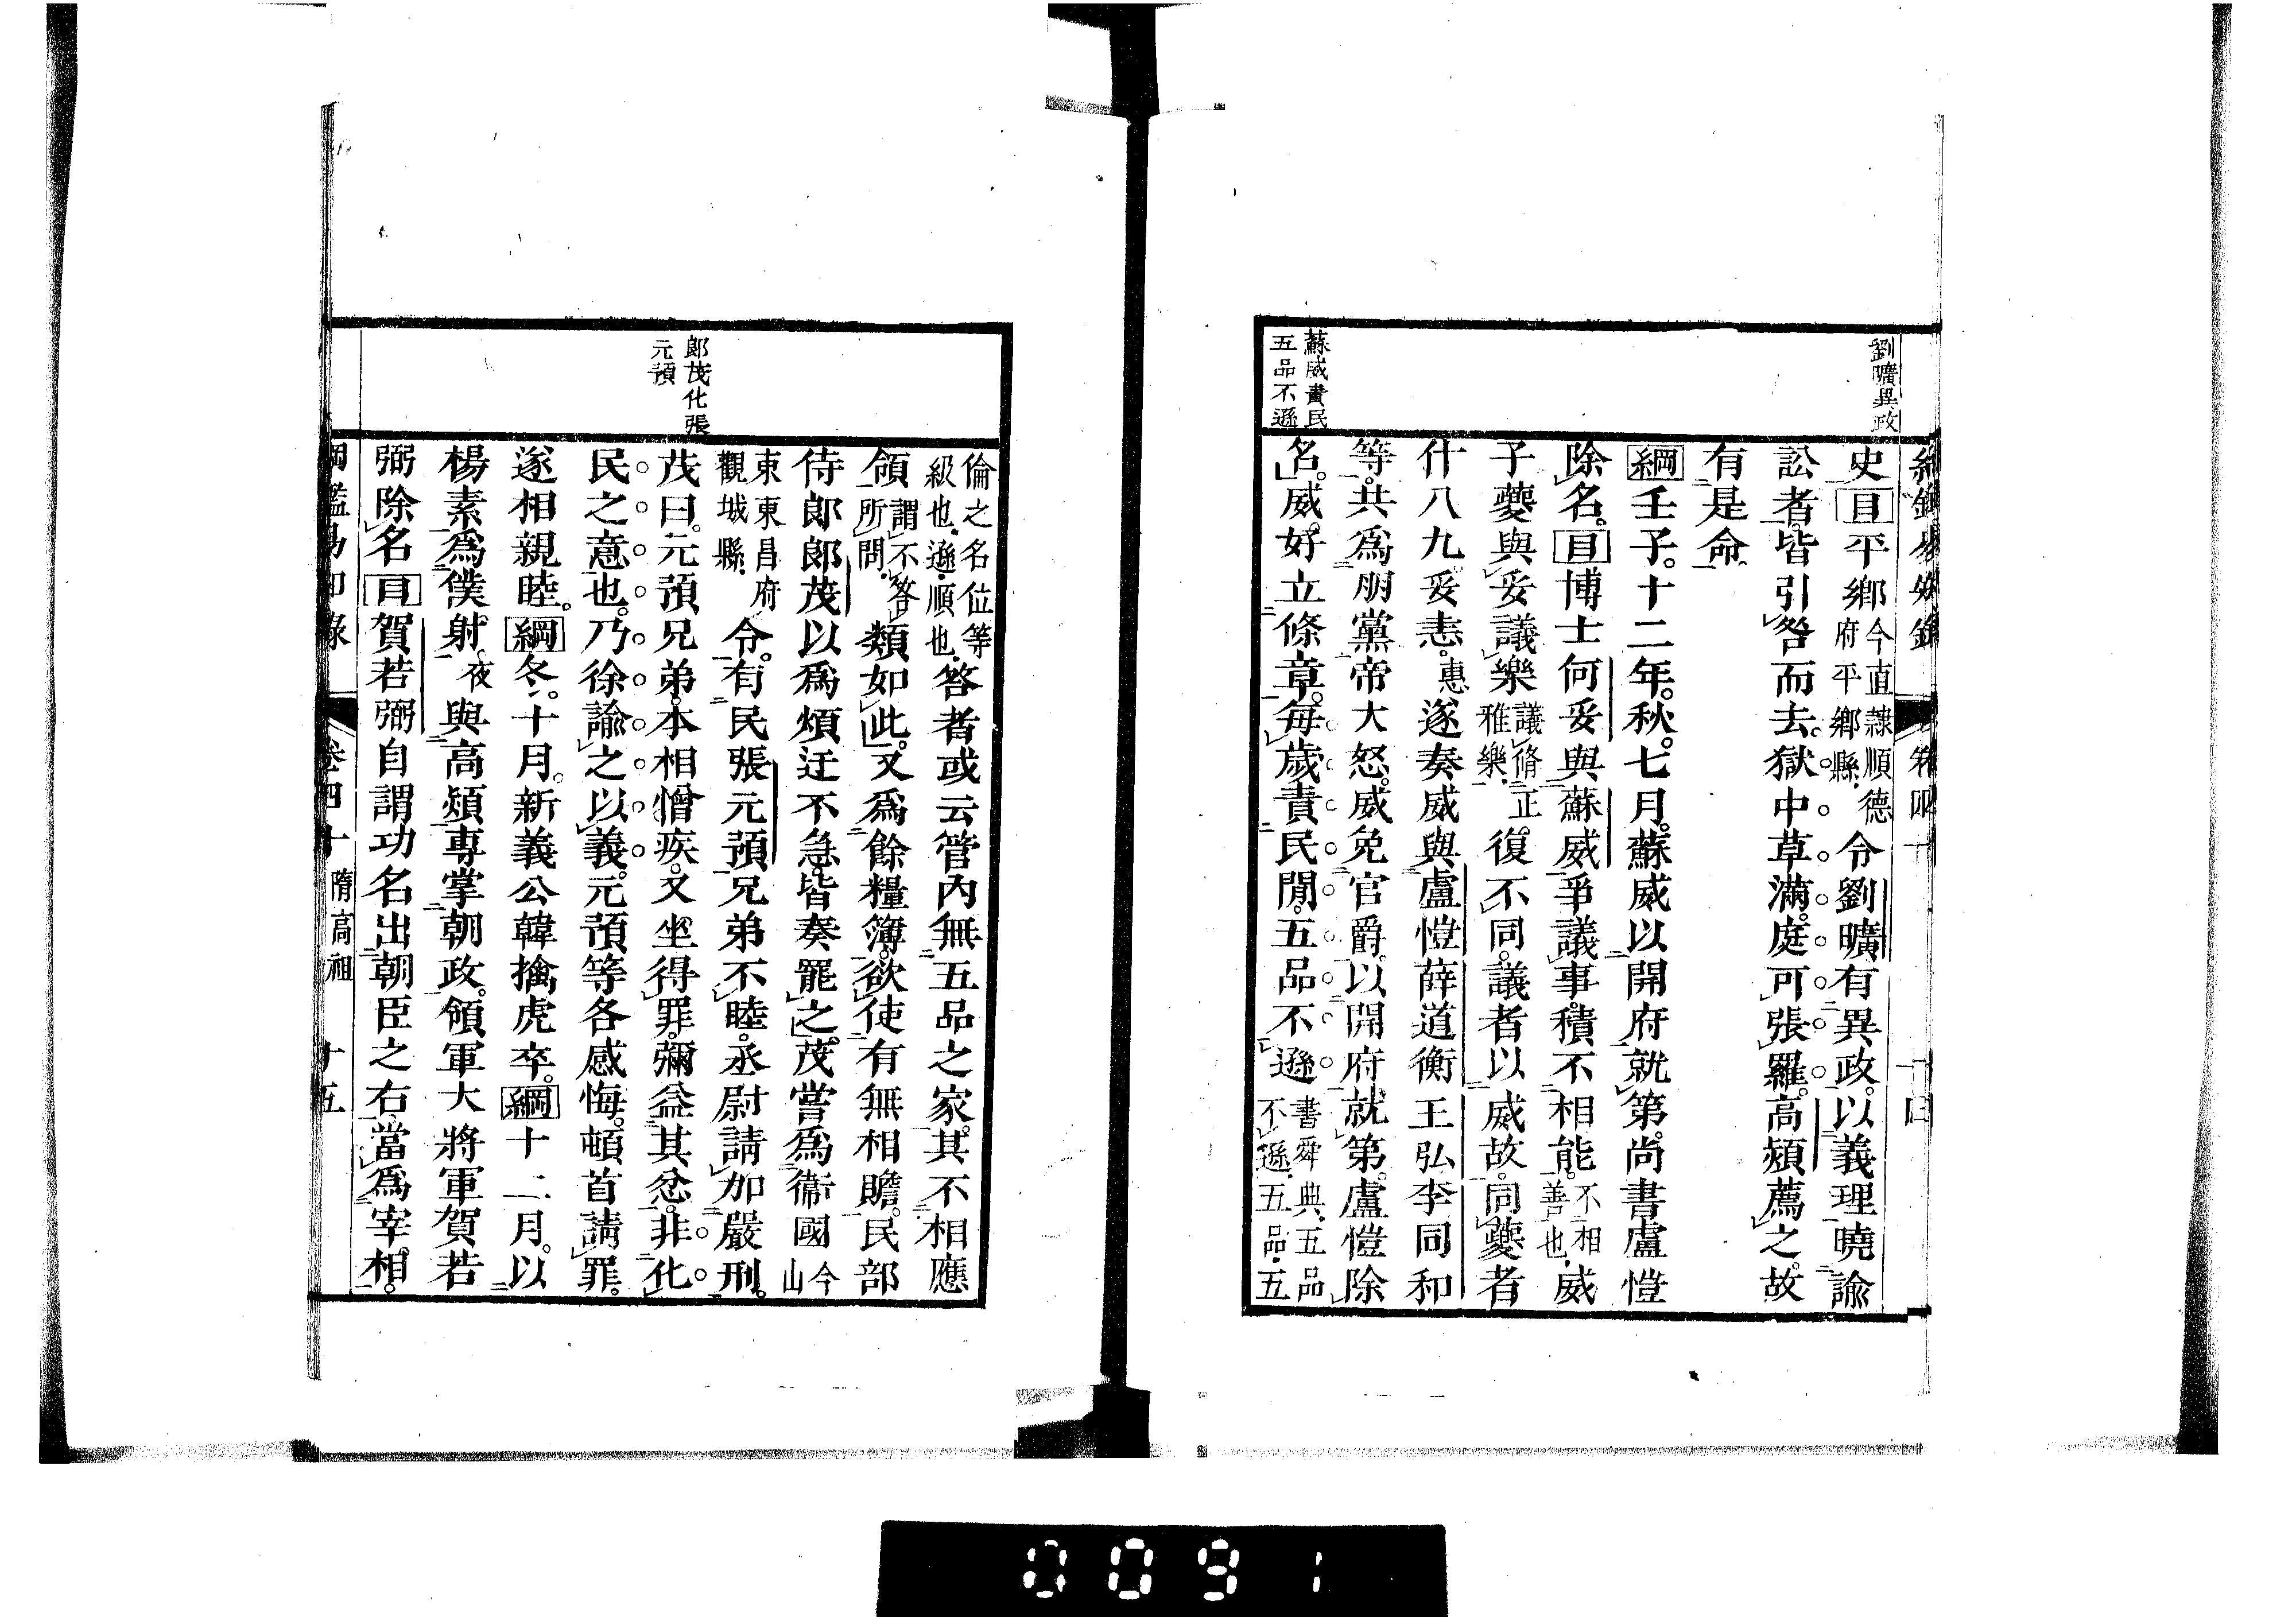 劉曠異政
史目平鄉今直隷順德府平鄉縣令劉曠有異政以義理曉諭
訟者皆引咎而去獄中草滿庭可張羅高熲薦之故
有是命
綱壬子十二年秋七月蘇威以開府就第尚書盧愷
除名目博士何妥與蘇威爭議事積不相能不相善也威
子夔與妥議樂議脩正雅樂復不同議者以威故同夔者
什八九妥恚惠遂奏威與盧愷薛道衡王弘李同和
等共爲朋黨帝大怒威免官爵以開府就第盧愷除
名威好立條章每歲責民閒五品不遜書舜典五品不遜五品五
蘇威責民
五品不遜
倫之名位等級也遜順也答者或云管內無五品之家其不相應
領謂不答所問類如此又爲餘糧簿欲使有無相贍民部
侍郞郞茂以爲煩迂不急皆奏罷之茂嘗爲衞國今山
東東昌府觀城縣令有民張元預兄弟不睦丞尉請加嚴刑
茂曰元預兄弟本相憎疾又坐得罪彌益其忿非化
民之意也乃徐諭之以義元預等各感悔頓首請罪
遂相親睦綱冬十月新義公韓擒虎卒綱十二月以
楊素爲僕射夜與高熲專掌朝政領軍大將軍賀若
弼除名目賀若弼自謂功名出朝臣之右當爲宰相
郞茂化張
元預
綱鑑易知錄 卷四十 隋高祖 十五